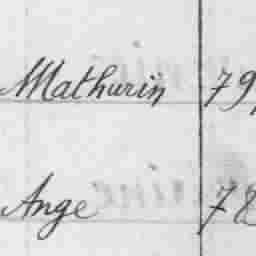 Mathurin 79
Ange 78